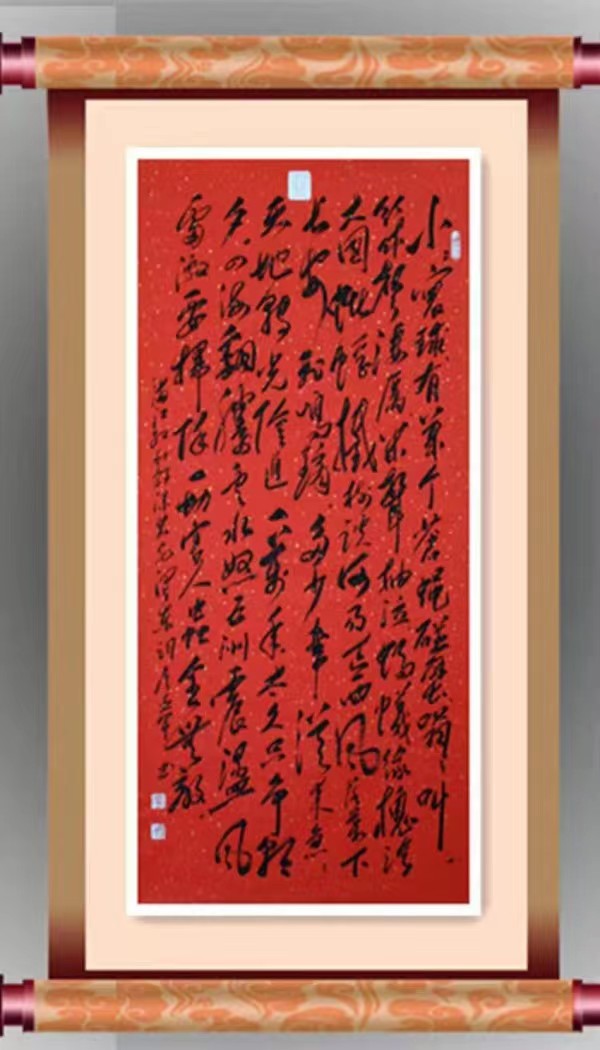 小〻寰球有几个苍蝇碰壁嗡〻叫
几声凄厉几声抽泣蚂蚁缘槐夸
大国蚍蜉撼树谈何易正西风落叶下
长安飞鸣镝多少事从来急
天地转光阴迫一万年太久只争朝
夕四海翻腾云水怒五洲震荡风
雷激要扫除一切害人虫全无敌
满江红和郭沫若毛泽东词 书